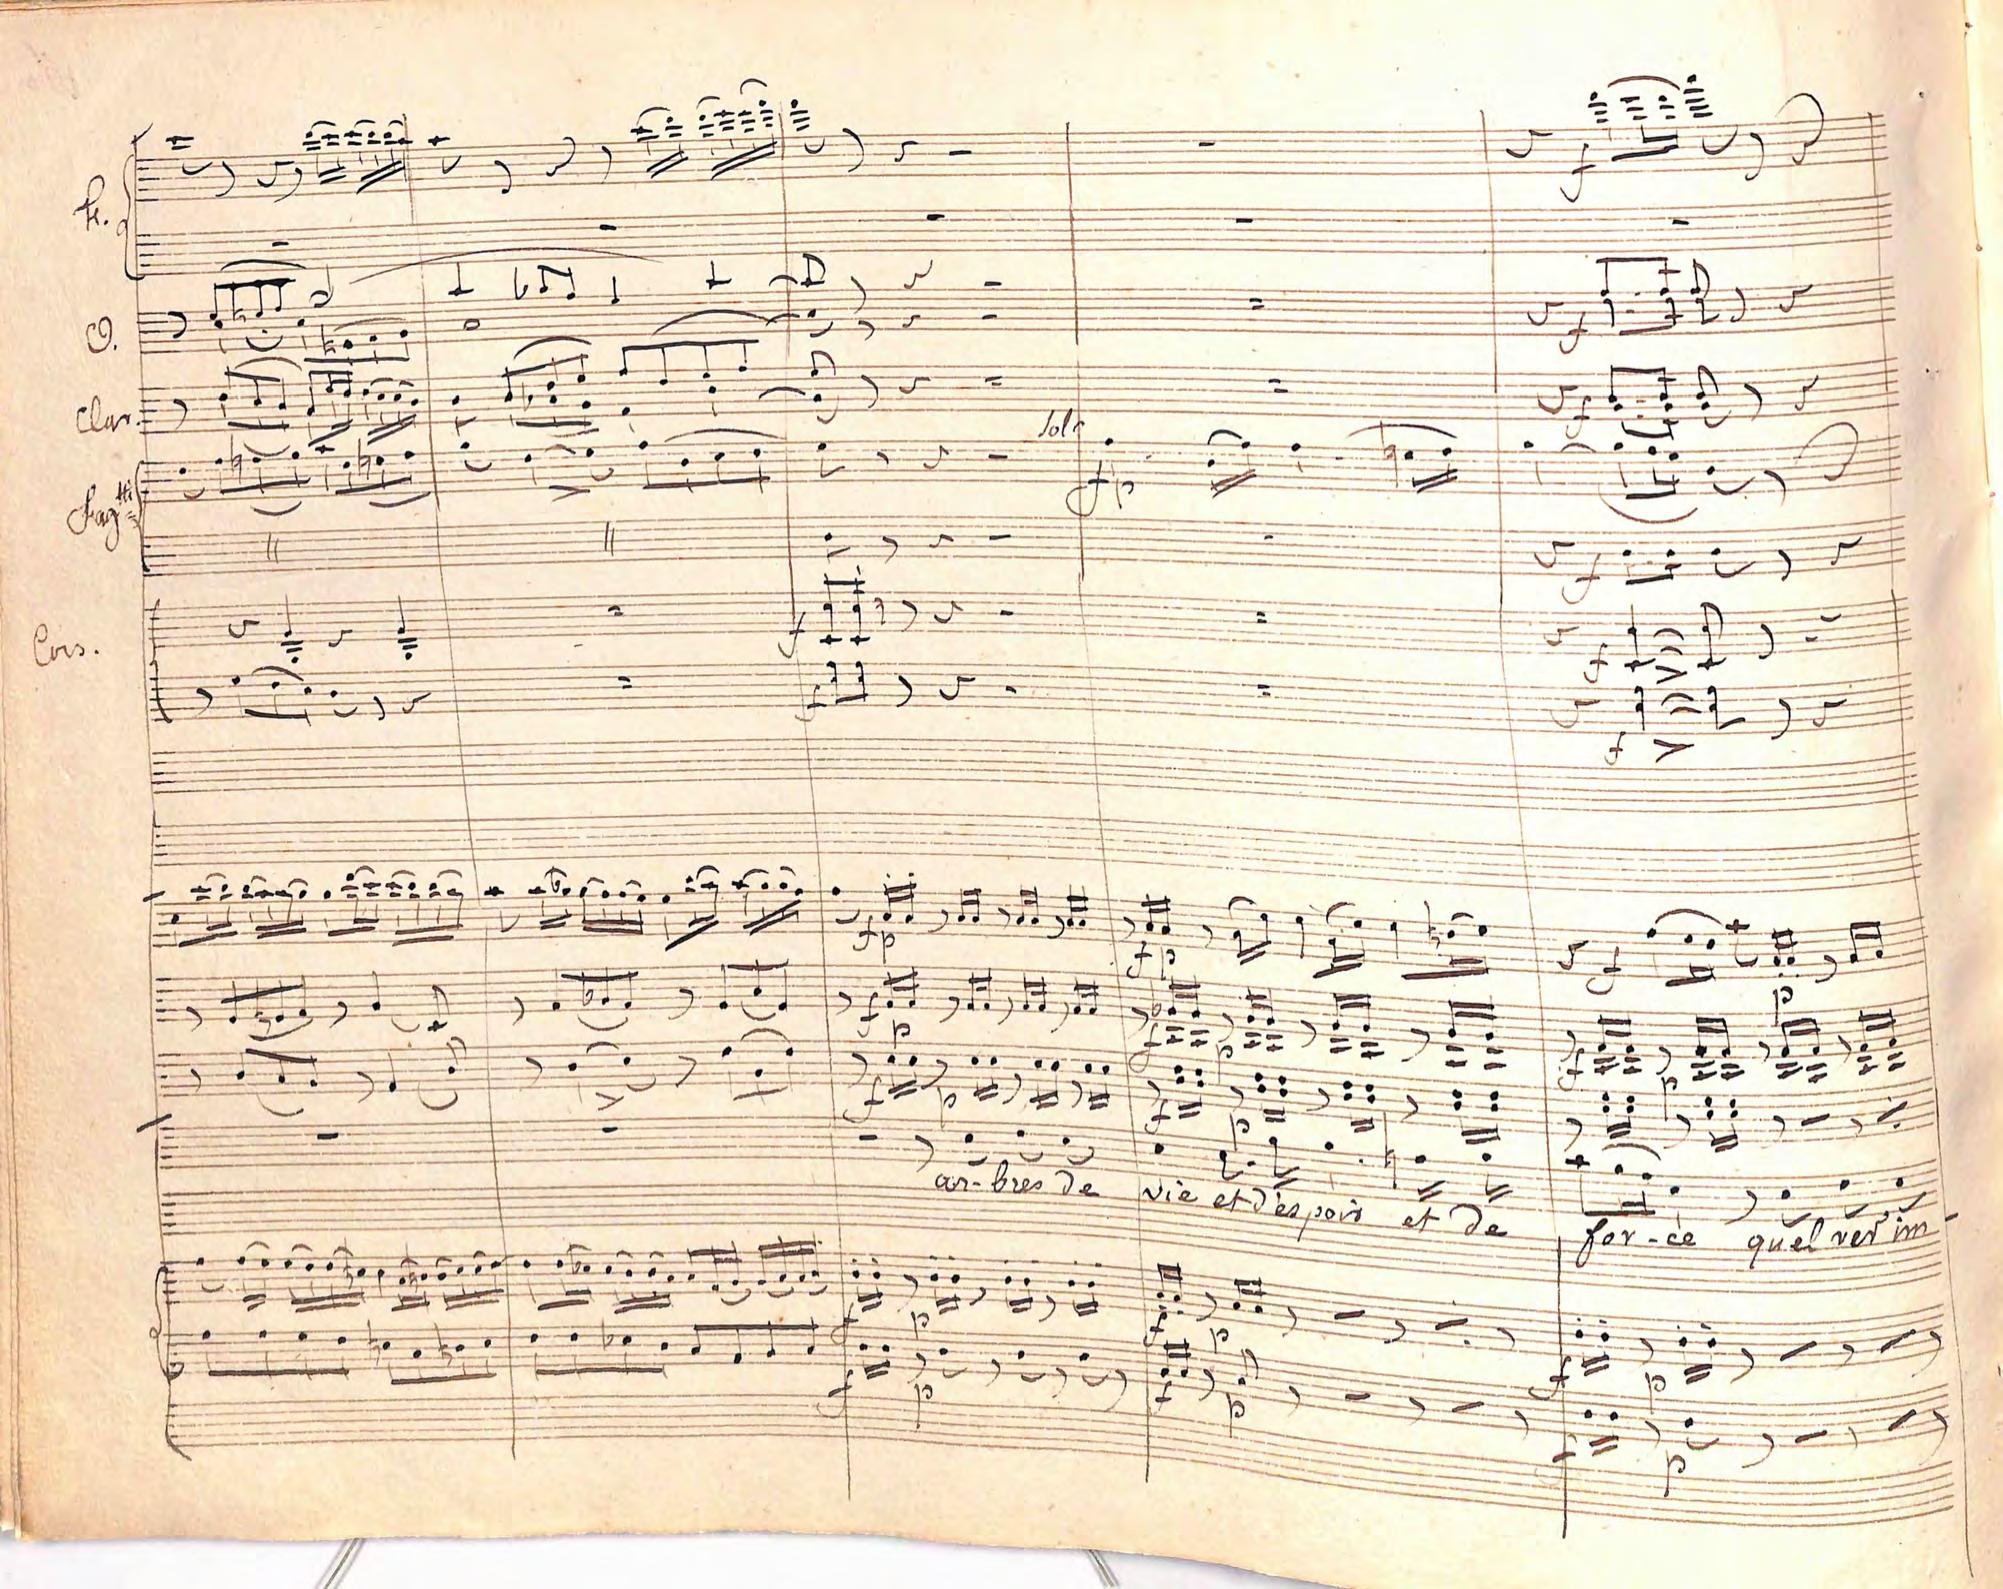 fl.
O.
Clar.
Solo
Fag.tti
Cors.
ar-bres de vie et d'espoir et de for-ce quel ver im-